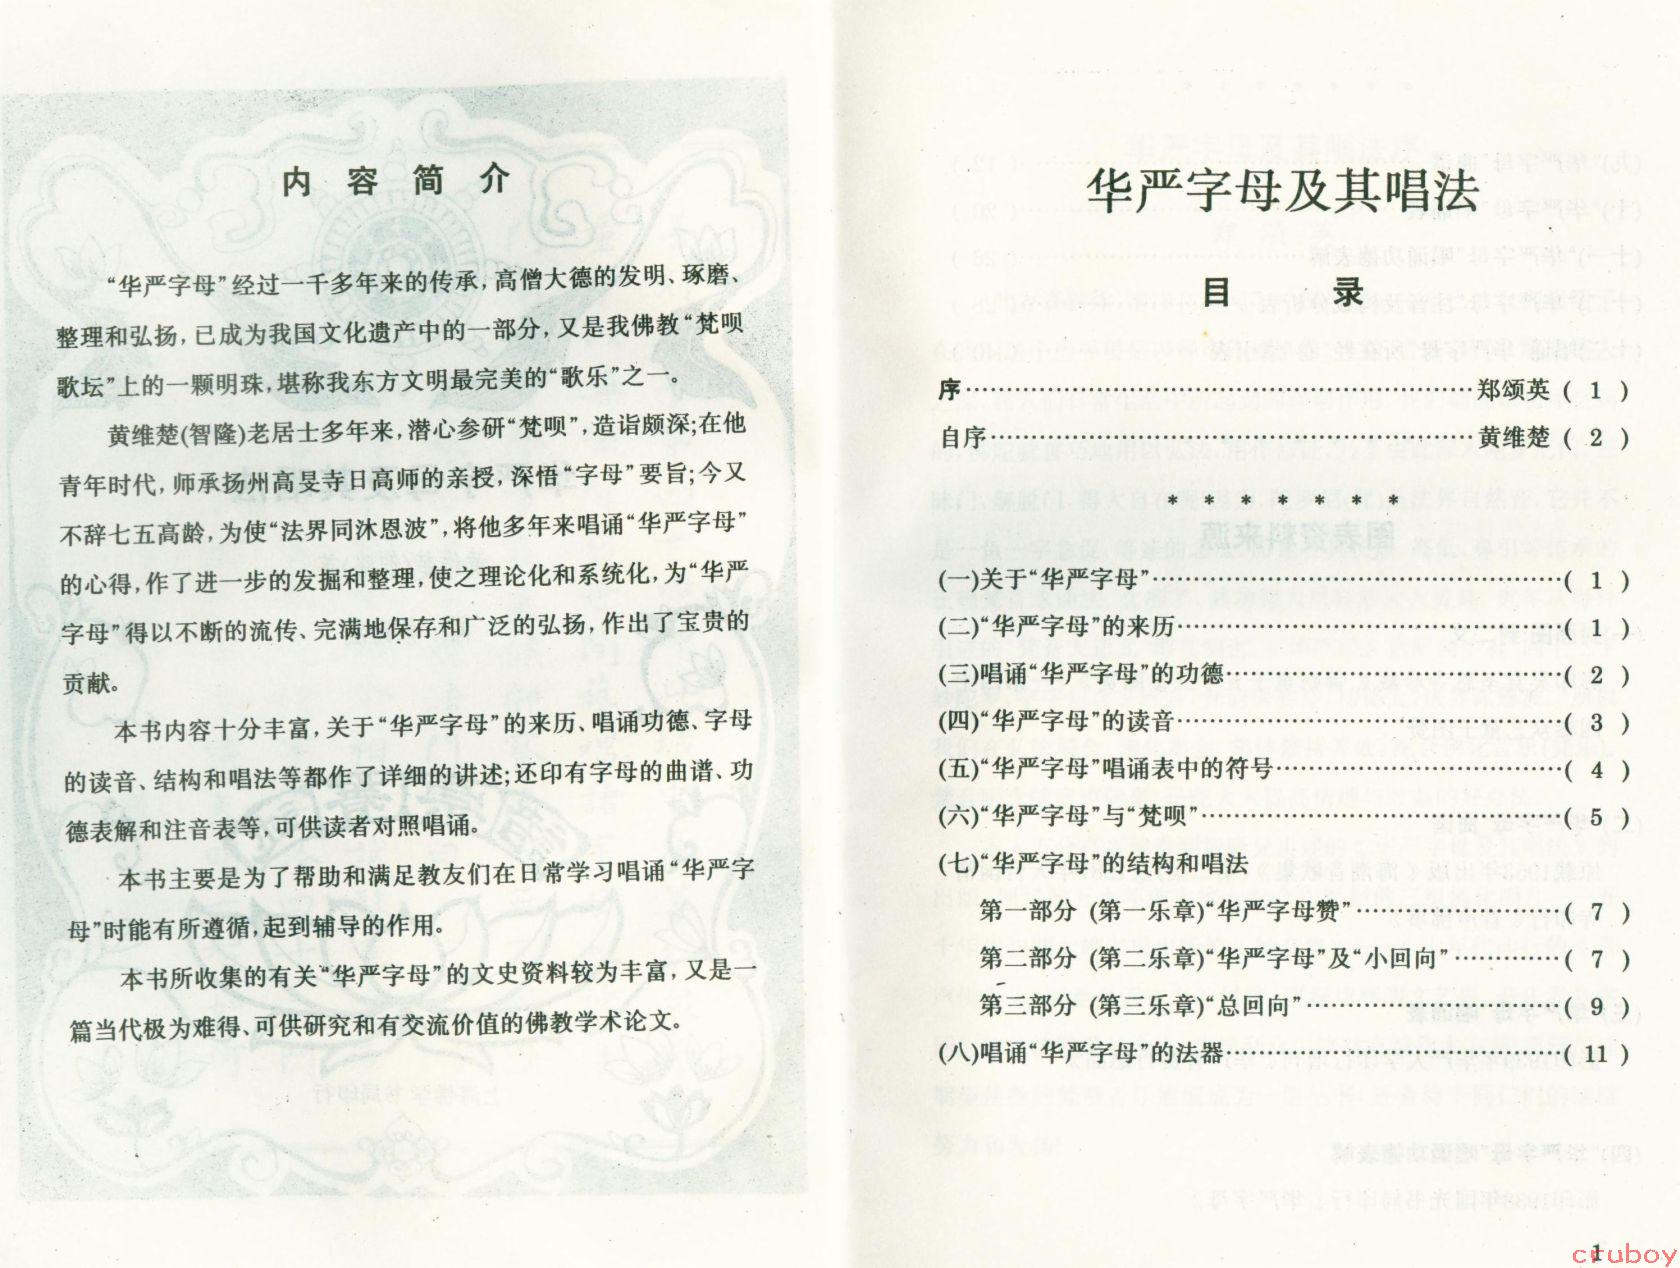 内 容 简 介
“华严字母”经过一千多年来的传承,高僧大德的发明、琢磨、
整理和弘扬,已成为我国文化遗产中的一部分,又是我佛教“梵呗
歌坛”上的一颗明珠,堪称我东方文明最完美的“歌乐”之一。
黄维楚(智隆)老居士多年来,潜心参研“梵呗”,造诣颇深;在他
青年时代,师承扬州高旻寺日高师的亲授,深悟“字母”要旨;今又
不辞七五高龄,为使“法界同沐恩波”,将他多年来唱诵“华严字母”
的心得,作了进一步的发掘和整理,使之理论化和系统化,为“华严
字母”得以不断的流传、完满地保存和广泛的弘扬,作出了宝贵的
贡献。
本书内容十分丰富,关于“华严字母”的来历、唱诵功德、字母
的读音、结构和唱法等都作了详细的讲述;还印有字母的曲谱、功
德表解和注音表等,可供读者对照唱诵。
本书主要是为了帮助和满足教友们在日常学习唱诵“华严字
母”时能有所遵循,起到辅导的作用。
本书所收集的有关“华严字母”的文史资料较为丰富,又是一
篇当代极为难得、可供研究和有交流价值的佛教学术论文。
华严字母及其唱法
目 录
序……………………………………………………郑颂英 ( 1 )
自序…………………………………………………黄维楚 ( 2 )
* * * * * * *
(一)关于“华严字母”…………………………………………( 1 )
(二)“华严字母”的来历………………………………………( 1 )
(三)唱诵“华严字母”的功德…………………………………( 2 )
(四)“华严字母”的读音………………………………………( 3 )
(五)“华严字母”唱诵表中的符号……………………………( 4 )
(六)“华严字母”与“梵呗”……………………………………( 5 )
(七)“华严字母”的结构和唱法
第一部分 (第一乐章)“华严字母赞”……………………( 7 )
第二部分 (第二乐章)“华严字母”及“小回向”…………( 7 )
第三部分 (第三乐章)“总回向”…………………………( 9 )
(八)唱诵“华严字母”的法器…………………………………( 11 )
1
ctuboy